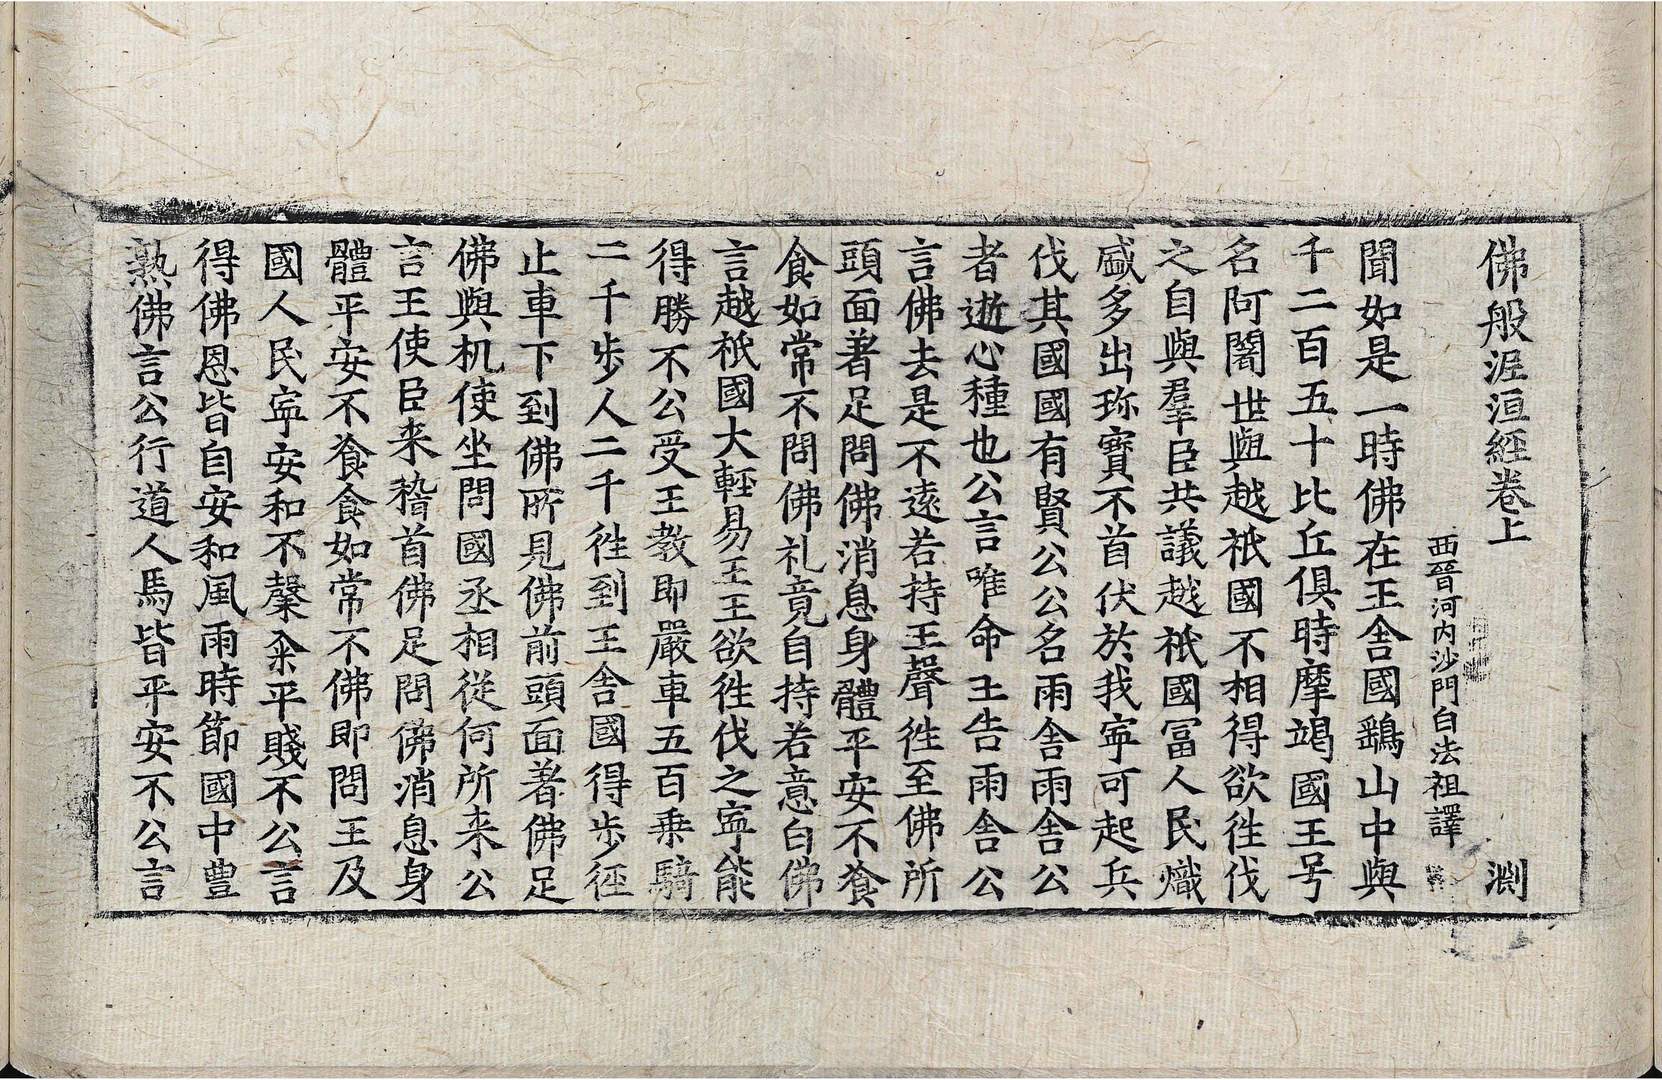 佛般泥洹經卷上 淵
西晉河内沙門白法祖譯
聞如是一時佛在王舍國鷂山中與
千二百五十比丘俱時摩竭國王号
名阿闍世與越祇國不相得欲往伐
之自與羣臣共議越祇國冨人民熾
盛多出珎寶不首伏於我寜可起兵
伐其國國有賢公公名雨舍雨舍公
者逝心種也公言唯命王告雨舍公
言佛去是不遠若持王聲徃至佛所
頭面著足問佛消息身體平安不飡
食如常不問佛礼竟自持若意白佛
言越祇國大輕易王王欲徃伐之寜能
得勝不公受王教即嚴車五百乗騎
二千步人二千徃到王舍國得步徑
止車下到佛所見佛前頭面著佛足
佛與机使坐問國丞相從何所来公
言王使臣来稽首佛足問佛消息身
體平安不飡食如常不佛即問王及
國人民寜安和不糳籴平賤不公言
得佛恩皆自安和風雨時節國中豊
熟佛言公行道人馬皆平安不公言